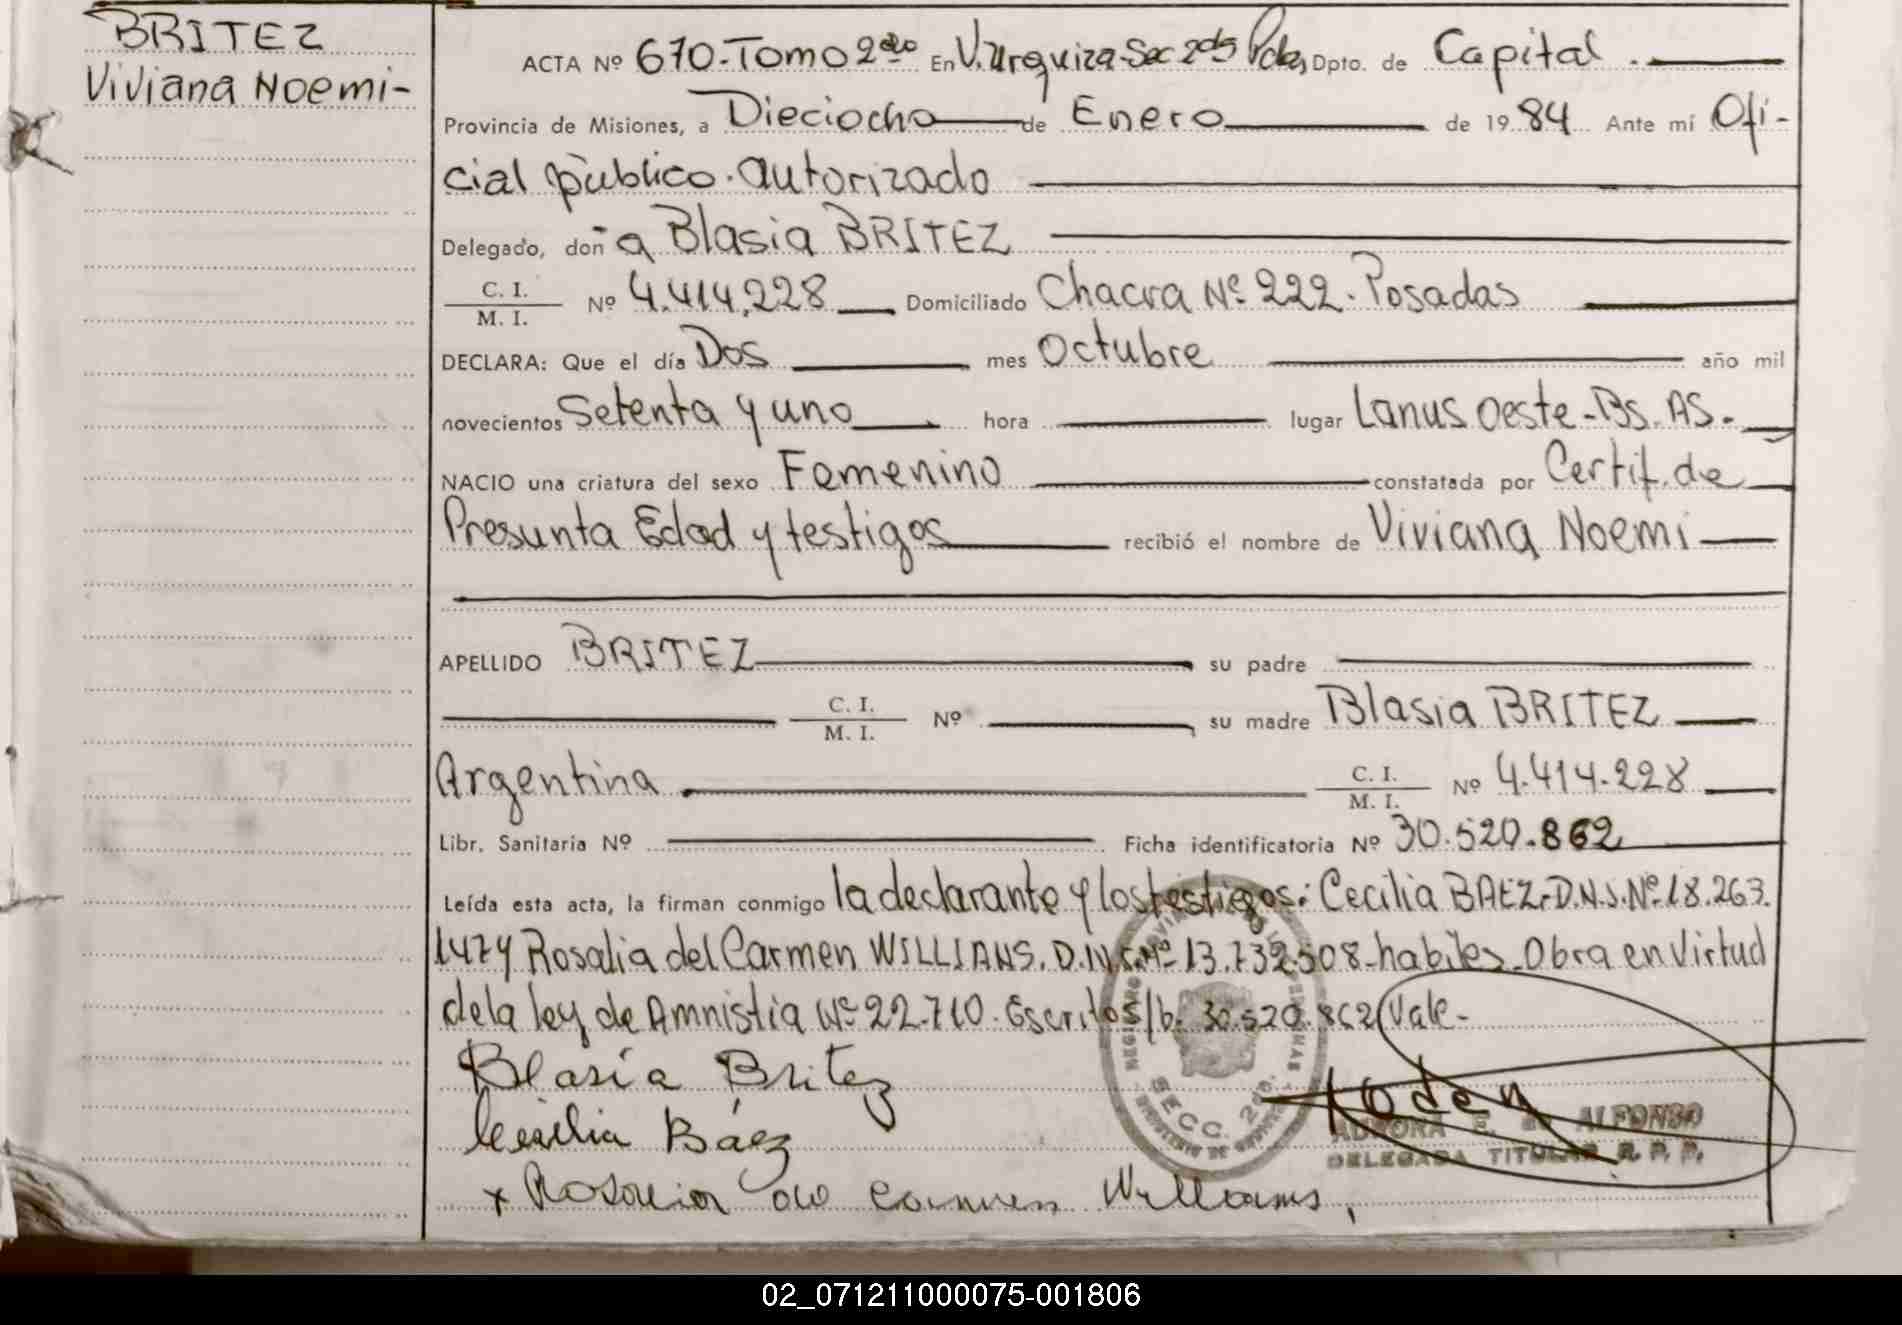 BRITEZ
Viviana Noemi-
ACTA Nº 670-Tomo 2do En V. Urquiza-Sec 2da Pdas Dpto. de Capital.
Provincia de Misiones, a Dieciocho de Enero de 1984 Ante mí Ofi-
cial público autorizado
Delegado, doña Blasia BRITEZ
C. I.
M. I. Nº 4.414.228 Domiciliado Chacra Nº 222. Posadas
DECLARA: Que el día Dos mes Octubre año mil
novecientos Setenta y uno hora lugar Lanus Oeste-Bs. AS.-
NACIO una criatura del sexo Femenino constatada por Certif. de
Presunta Edad y testigos recibió el nombre de Viviana Noemi
APELLIDO BRITEZ su padre
C. I.
M. I. Nº su madre Blasia BRITEZ
Argentina C. I.
M. I. Nº 4.414.228
Libr. Sanitaria Nº Ficha identificatoria Nº 30.520.862
Leída esta acta, la firman conmigo la declarante y los testigos: Cecilia BAEZ-D.N.I. Nº 18.263.
147 y Rosalia del Carmen WILLIANS. D.N.I. Nº 13.732.508-habiles-Obra en Virtud
de la ley de Amnistia Nº 22.710. Escritos/b. 30.520.862 (Vale-
Blasia Britez
Cecilia Báez
x Rosalia del Carmen Willians
SECC. 2da.
ALFONSO
DELEGADA TITULAR R. P. P.
02_071211000075-001806